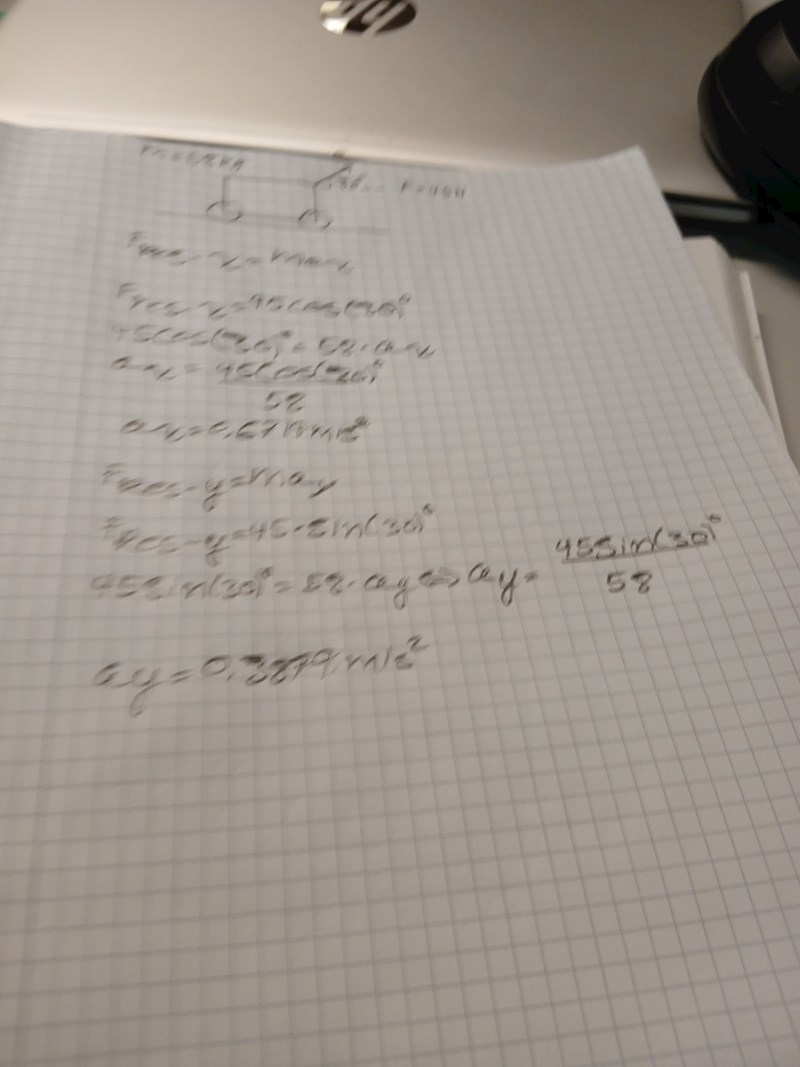 hp
m=58kg
30° F=45N
Fres-x=m·ax
Fres-x=45cos(30)°
45cos(30)°=58·ax
ax=45cos(30)°/58
ax=0,67 m/s²
Fres-y=m·ay
Fres-y=45·sin(30)°
45sin(30)°=58·ay⇔ay=45sin(30)°/58
ay=0,3879m/s²